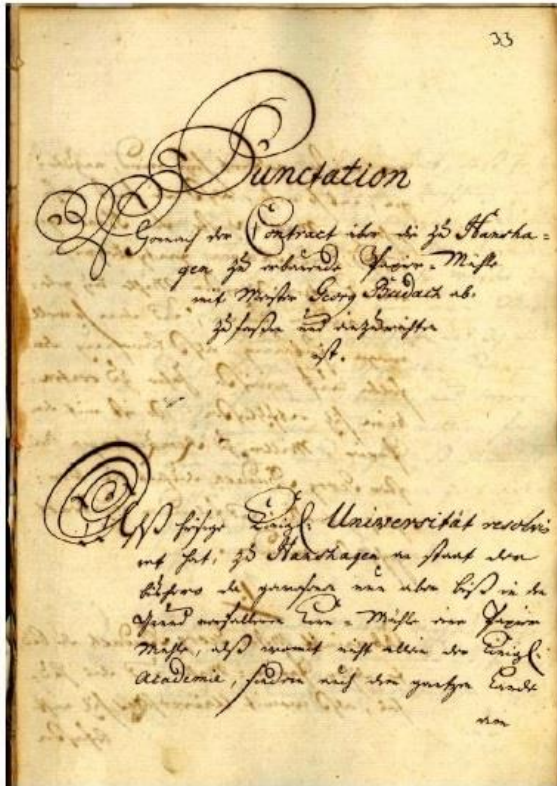 33
Punctation
Wonach der Contract über die zu Hansha-
gen zu erbauende Papier-Mühle
mit Meister Georg Budach ab-
zufaßen und einzurichten
ist.
Alß hiesige Königl: Universität resolvi-
ret hat, zu Hanshagen an statt der
bißhero da gewesenen nun aber biß in den
Grund verfallenen Korn-Mühle eine Papier
Mühle, alß womit nicht allein der Königl:
Academie, sondern auch dem gantzen Lande